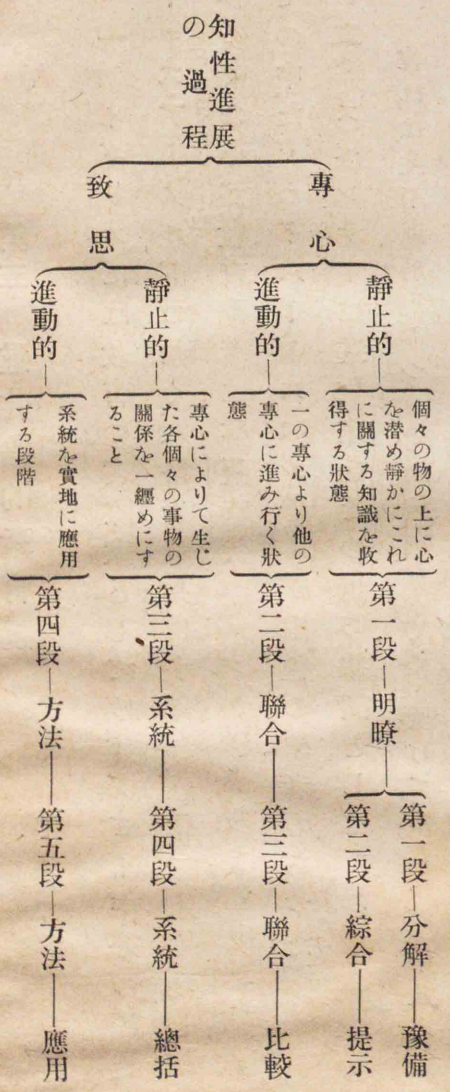 知性進展
の過程
專心
靜止的
個々の物の上に心
を潜め靜かにこれ
に關する知識を收
得する狀態
第一段
明瞭
第一段
分解
豫備
第二段
綜合
提示
進動的
一の專心より他の
專心に進み行く狀
態
第二段
聯合
第三段
聯合
比較
致思
靜止的
專心によりて生じ
た各個々の事物の
關係を一纒めにす
ること
第三段
系統
第四段
系統
總括
進動的
系統を實地に應用
する段階
第四段
方法
第五段
方法
應用